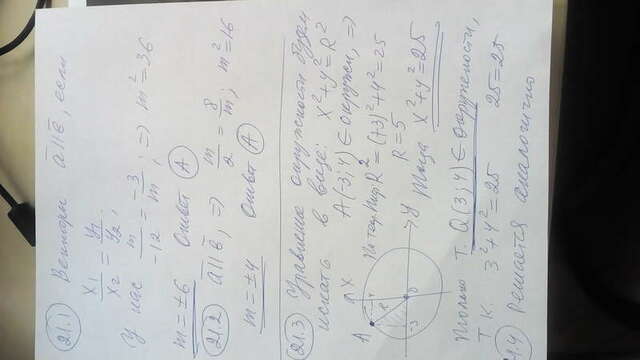 21.1 Вектора a̅ || b̅, если
x₁/x₂ = y₁/y₂,
У нас m/-12 = -3/m, => m² = 36
m = ±6 Ответ A
21.2 a̅ || b̅, => m/2 = 8/m; m² = 16
m = ±4 Ответ A
21.3 Уравнение окружности будем
искать в виде: x² + y² = R²
A(-3; 4) ∈ окружн, =>
по т. Пиф R² = (+3)² + 4² = 25
R = 5
Тогда x² + y² = 25
A
X
y
4
R
-3
0
Только т. Q(3; 4) ∈ окружности,
т.к. 3² + 4² = 25 25 = 25
1.4 Решается аналогично